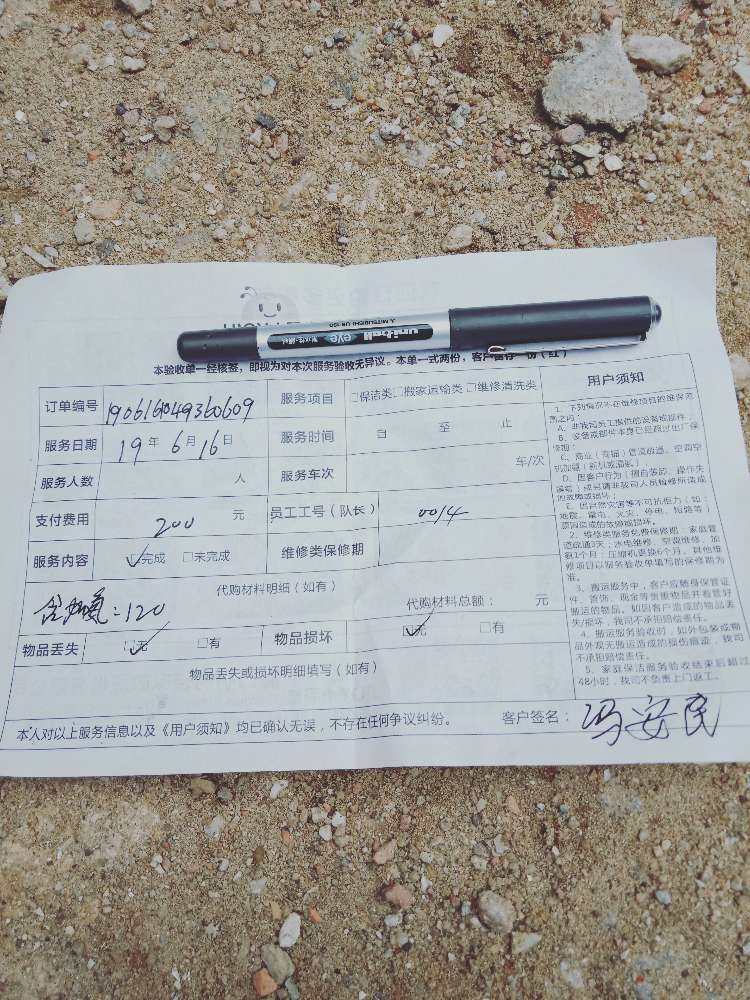 uni-ball eye
MITSUBISHI UB-150
本验收单一经核签，即视为对本次服务验收无异议。本单一式两份，客户留存一份（红）
订单编号 19061604936060９
服务项目 □保洁类□搬家运输类 □维修清洗类
服务日期 19 年 6 月 16 日
服务时间 自 至 止
服务人数 人
服务车次 车/次
支付费用 200 元
员工工号（队长） 0014
服务内容 ☑完成 □未完成
维修类保修期
代购材料明细（如有）
：120
代购材料总额： 元
物品丢失 ☑无 □有
物品损坏 ☑无 □有
物品丢失或损坏明细填写（如有）
本人对以上服务信息以及《用户须知》均已确认无误，不存在任何争议纠纷。
客户签名：冯安民
用户须知
1、下列情况不在维修项目的维保范
围之内：
A、非我司员工提供的设备或部件；
B、设备或部件本身已经超过出厂保
修期；
C、商业（商铺）管道疏通、空调空
机加氟（新机或漏氟）
D、因客户行为（擅自装卸、操作失
误等）或另请非我司人员检修所造成
的故障或损坏；
E、因自然灾害等不可抗拒力（如：
地震、雷电、火灾、停电、短路等）
原因造成的故障或损坏。
2、维修类服务免费保修期：家庭管
道疏通3天；水电维修、空调维修、加
氟1个月；压缩机更换6个月，其他维
修项目以服务验收单填写的保修期为
准。
3、搬运服务中，客户应随身保管证
件、首饰、现金等贵重物品并看管好
搬运的物品。如因客户造成的物品丢
失/损坏，我司不承担赔偿责任。
4、搬运服务验收时，如外包装或物
品外观无搬运造成的损伤痕迹，我司
不承担赔偿责任。
5、家庭保洁服务验收结束后超过
48小时，我司不负责上门返工。